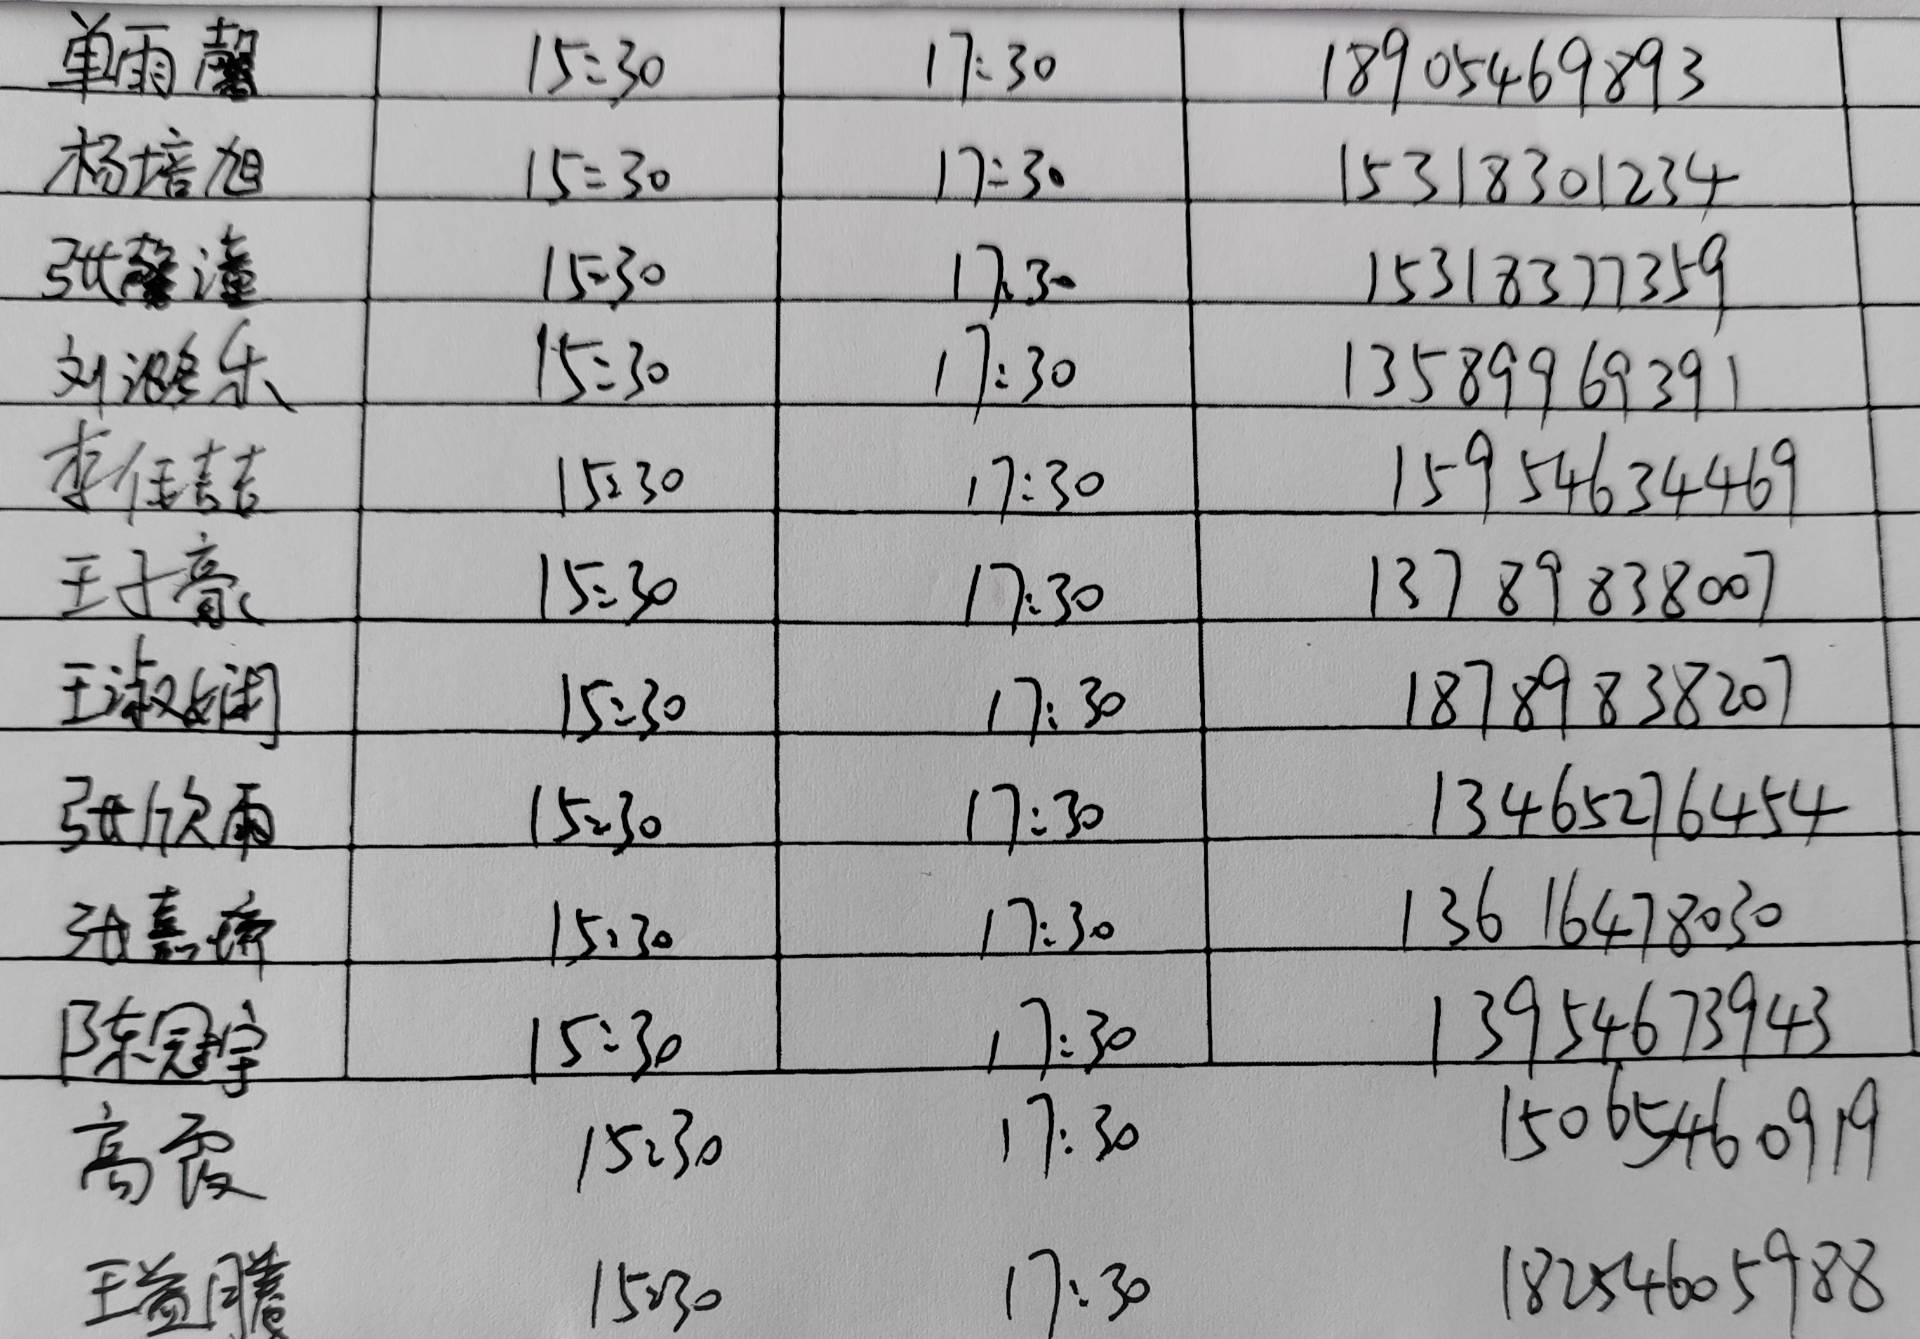 单雨馨 15:30 17:30 18905469893
杨培旭 15:30 17:30 15318301234
张馨潼 15:30 17:30 15318377359
刘潞乐 15:30 17:30 13589969391
李任喆 15:30 17:30 15954634469
王子豪 15:30 17:30 13789838007
王淑娴 15:30 17:30 18789838207
张欣雨 15:30 17:30 13465276454
张嘉琦 15:30 17:30 13616478030
陈冠宇 15:30 17:30 13954673943
高霞 15:30 17:30 15065460919
王益腾 15:30 17:30 18254605988